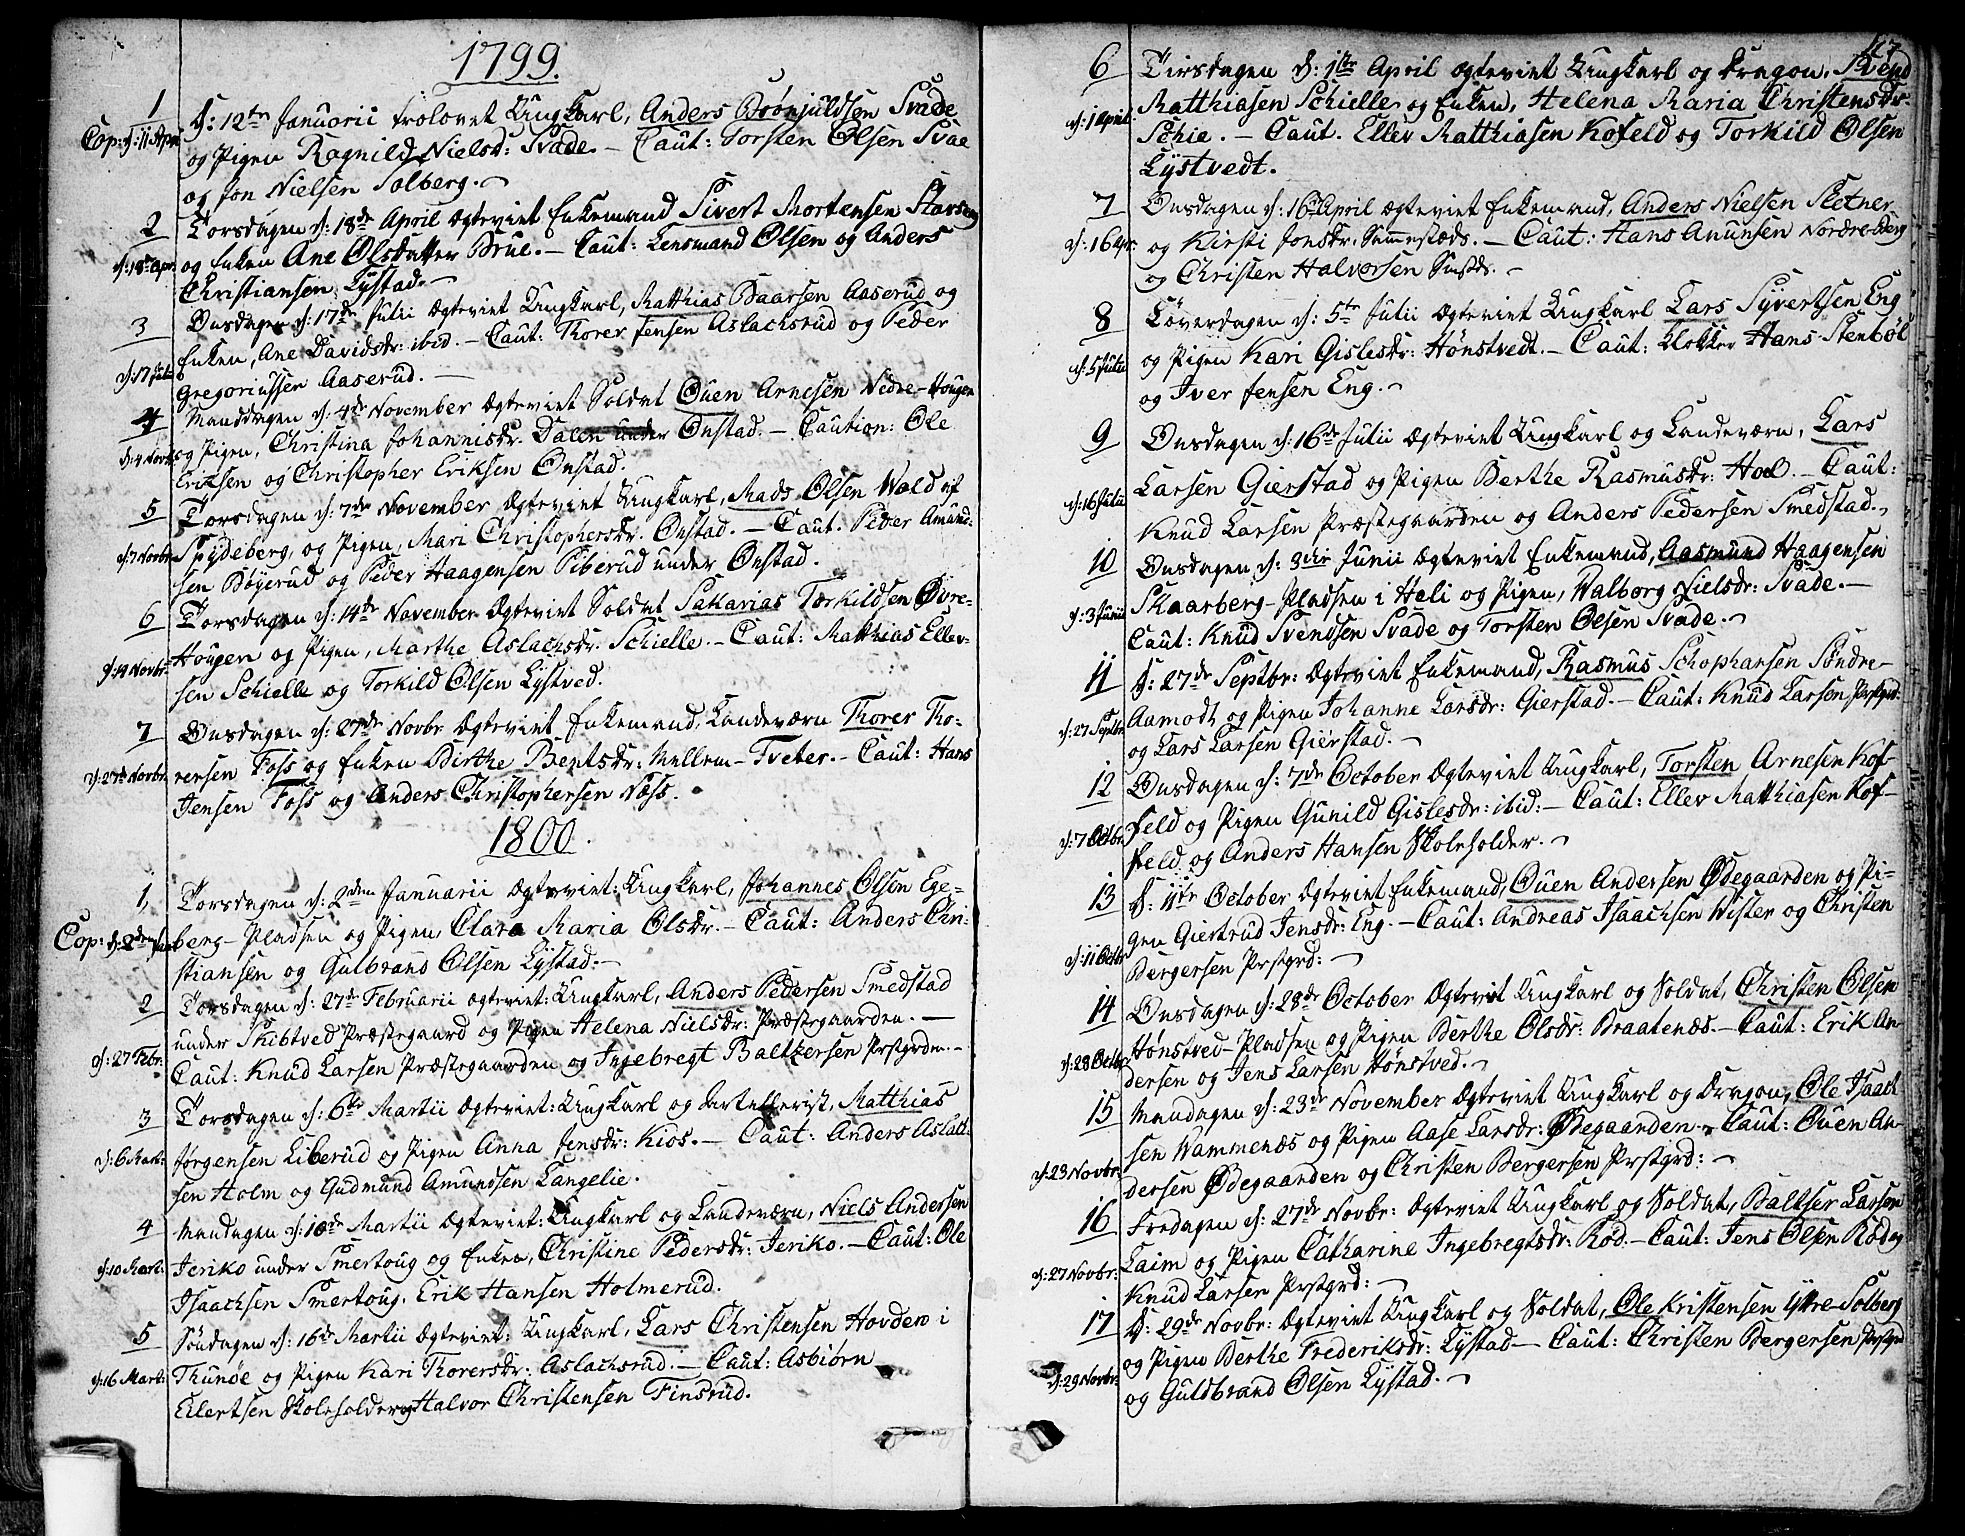 1799.
1
Cop: d: 11 Apr:
D: 12te Januarii trolovet Ungkarl, Anders Börnjuldsen Svade
og Pigen Ragnild Nielsd: Svade. – Caut: Torsten Olsen Svae
og Jon Nielsen Solberg.
2
d: 18 Apr.
Torsdagen d: 18de April Ægteviet Enkemand Sivert Mortensen
og Enken Ane Olsdatter Brue. – Caut: Lensmand Olsen og Anders
Christiansen Lystad.
3
d: 17 Juli
Onsdagen d: 17de Julii Ægteviet Ungkarl, Matthias Baarsen Aaserud og
Enken, Ane Davidsdr: ibid. – Caut: Thorer Jensen Aslachsrud og Peder
Gregoriussen Aaserud. –
4
d: 4 Novbr
Manddagen d: 4de November Ægteviet Soldat Ouen Arnesen Nedre-Hougen
og Pigen, Christina Johannisdr. Dalen under Onstad. – Caution: Ole
Eriksen og Christopher Eriksen Onstad.
5
d: 7 Novbr
Torsdagen d: 7de November Ægteviet Ungkarl, Mads Olsen Wold af
Spydeberg, og Pigen, Mari Christophersdr. Onstad. – Caut: Peder Amund-
sen Böyerud og Peder Haagensen Piberud under Onstad.
6
d: 14 Novbr
Torsdagen d: 14de November Ægteviet Soldat Sakarias Torkildsen Øvre-
Hougen og Pigen, Marthe Aslachsdr. Schielle. – Caut: Matthias Ellev-
sen Schielle og Torkild Olsen Lystved.
7
d: 27de Novbr.
Onsdagen d: 27de Novbr Ægteviet Enkemand, Landeværn Thorer Tho-
rersen Foss og Enken Birthe Bentsdr: Mellem-Tveter. – Caut: Hans
Jensen Foss og Anders Christophersen Næss.
1800.
1,
Cop: d: 2den Jan
Torsdagen d: 2den Januarii Ægteviet: Ungkarl, Johannes Olsen Ege-
berg-Pladsen og Pigen, Clara Maria Olsdr. – Caut: Anders Chri-
stiansen og Gulbrand Olsen Lystad. –
2
d: 27 Febr:
Torsdagen d: 27de Februarii ægteviet: Ungkarl, Anders Pedersen Smedstad
under Skibtved Præstegaard og Pigen Helena Nielsdr: Præstegaarden. –
Caut: Knud Larsen Præstegaarden og Ingebregt Baltzersen Prstgrdn. –
3
d: 6 Mart:
Torsdagen d: 6te Martii Ægteviet: Ungkarl og Artellerist, Matthias
Jørgensen Liberud og Pigen Anna Jensdr: Kios. – Caut: Anders Aslak-
sen Holm og Gudmund Amundsen Langelie.
4
d: 10 Mart:
Mandagen d: 10de Martii Ægteviet: Ungkarl og Landeværn, Niels Andersen
Jeriko under Smertoug og Enken, Christine Pedersdr: Jeriko. – Caut: Ole
Isaachsen Smertoug, Erik Hansen Holmerud.
5
d: 16 Mart:
Söndagen d: 16de Martii Ægteviet: Ungkarl, Lars Christensen Hovden i
Thunöe og Pigen Kari Thorersdr: Aslachsrud. – Caut: Asbiørn
Eilertsen Skoleholder og Halvor Christensen Finsrud.
47
6
d: 1 April.
Tirsdagen d: 1ste April ægteviet Ungkarl og Dragon,
Matthiasen Schielle og Enken, Helena Maria Christensdr.
Schie. – Caut. Ellev Matthiasen Kofeld og Torkild Olsen
Lystvedt.
7
d: 16 Apr.
Onsdagen d: 16de April Ægteviet Enkemand, Anders Nielsen Sletner
og Kirsti Jonsdr. Sammesteds. – Caut: Hans Anunsen Nordre-Berg
og Christen Halvorsen
8
d: 5 Julii
Löverdagen d: 5te Julii Ægteviet Ungkarl Lars Syvertsen Eng
og Pigen Kari Gislesdr: Hönstvedt. – Caut: Klokker Hans Stenböl
og Iver Jensen Eng.
9
d: 16 Julii
Onsdagen d: 16de Julii Ægteviet Ungkarl og Landeværn, Lars
Larsen Gierstad og Pigen Berthe Rasmusdr: Hoel. – Caut:
Knud Larsen Præstegaarden og Anders Pedersen Smedstad.
10
d: 3 Junii
Onsdagen d: 3die Junii Ægteviet Enkemand, Aasmund Haagensen
Skaarberg-Pladsen i Heli og Pigen, Walborg Nielsdr: Svade. –
Caut: Knud Svendsen Svade og Torsten Olsen Svade.
11
d: 27 Septbr
D: 27de Septbr: Ægteviet Enkemand, Rasmus Schophansen Söndre-
Aamodt og Pigen Johanne Larsdr: Gierstad. – Caut: Knud Larsen Prstgrd:
og Lars Larsen Gierstad. –
12
d: 7 Octbr
Onsdagen d: 7de October Ægteviet Ungkarl, Torsten Arnesen Kof-
feld og Pigen Gunild Gislesdr: ibid: – Caut: Ellev Matthiasen Kof-
feld og Anders Hansen Skoleholder.
13
d: 11 Octbr
D: 11te October Ægteviet Enkemand, Ouen Andersen Ødegaarden og Pi-
gen Giertrud Jensdr: Eng. – Caut: Andreas Isaachsen Wister og Christen
Bergersen Prstgrd: –
14
d: 28 Octbr
Onsdagen d: 28de October Ægteviet Ungkarl og Soldat, Christen Olsen
Hönstved-Pladsen og Pigen Berthe Olsdr: Braatenæs. – Caut: Erik An-
dersen og Jens Larsen Hönstved.
15
d: 23 Novbr:
Mandagen d: 23de November Ægteviet Ungkarl og Dragon, Ole Isaach-
sen Wammenæs og Pigen Aase Larsdr: Ødegaarden. – Caut: Ouen An-
dersen Ødegaarden og Christen Bergersen Prstgrd: –
16
d: 27 Novbr:
Fredagen d: 27de Novbr: Ægteviet Ungkarl og Soldat, Baltser Larsen
Laim og Pigen Catharine Ingebregtsdr: Röd. – Caut: Jens Olsen Röd og
Knud Larsen Prstgrd: –
17
d: 29 Novbr:
D: 29de Novbr: Ægteviet Ungkarl og Soldat, Ole Kristensen Yttre-Solberg
og Pigen Berthe Frederiksdr: Lystad – Caut: Christen Bergersen Prstgrd
og Guldbrand Olsen Lystad. –